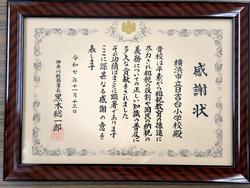 感謝状
横浜市立日吉台小学校殿
貴校は平素から租税教育の推進に
尽力され租税の役割や国民の納税の
義務についての正しい知識の普及に
多大な貢献をされました
その功績はまことに顕著であります
ここに深甚なる感謝の意を
表します
令和七年十一月十三日
神奈川税務署長 黒木総一郎